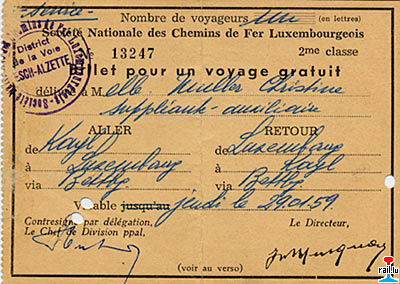 Service
Nombre de voyageurs un (en lettres)
Société Nationale des Chemins de Fer Luxembourgeois
District
de la Voie
ESCH-ALZETTE
13247 2me classe
Billet pour un voyage gratuit
délivré à Melle Muller Christine
suppléant-auxiliaire
ALLER RETOUR
de Kayl de Luxembourg
à Luxembourg à Kayl
via Bettbg via Bettbg
Valable jusqu'au jeudi le 29 01 59.
Contresigné par délégation, Le Directeur,
Le Chef de Division ppal,
(voir au verso)
rail.lu